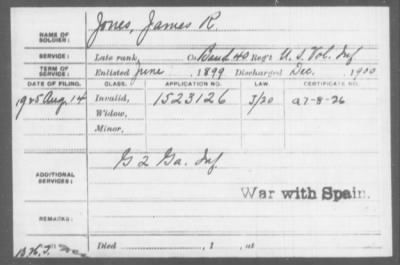 NAME OF SOLDIER: Jones, James R.
SERVICE: Late rank, Co. Band 40 Reg't U. S. Vol. Inf
TERM OF SERVICE: Enlisted June, 1899 Discharged Dec., 1900
DATE OF FILING. CLASS. APPLICATION NO. LAW. CERTIFICATE NO.
1925 Aug. 14 Invalid, 1523126 3/20 a 7-8-26
Widow,
Minor,
ADDITIONAL SERVICES: G 2 Ga. Inf.
War with Spain.
REMARKS:
Died , 1 , at